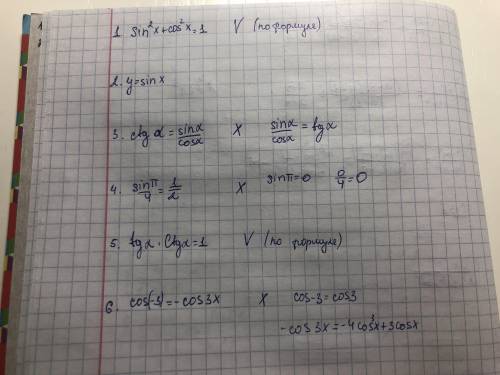 1. sin²x+cos²x=1 V (по формуле)
2. y=sinx
3. ctg α = sinα/cosα X sinα/cosα = tgα
4. sinπ/4 = 1/2 X sinπ=0 0/4=0
5. tgα · Ctgα=1 V (по формуле)
6. cos(-3)=-cos3x X cos-3=cos3
-cos3x=-4cos³x+3cosx